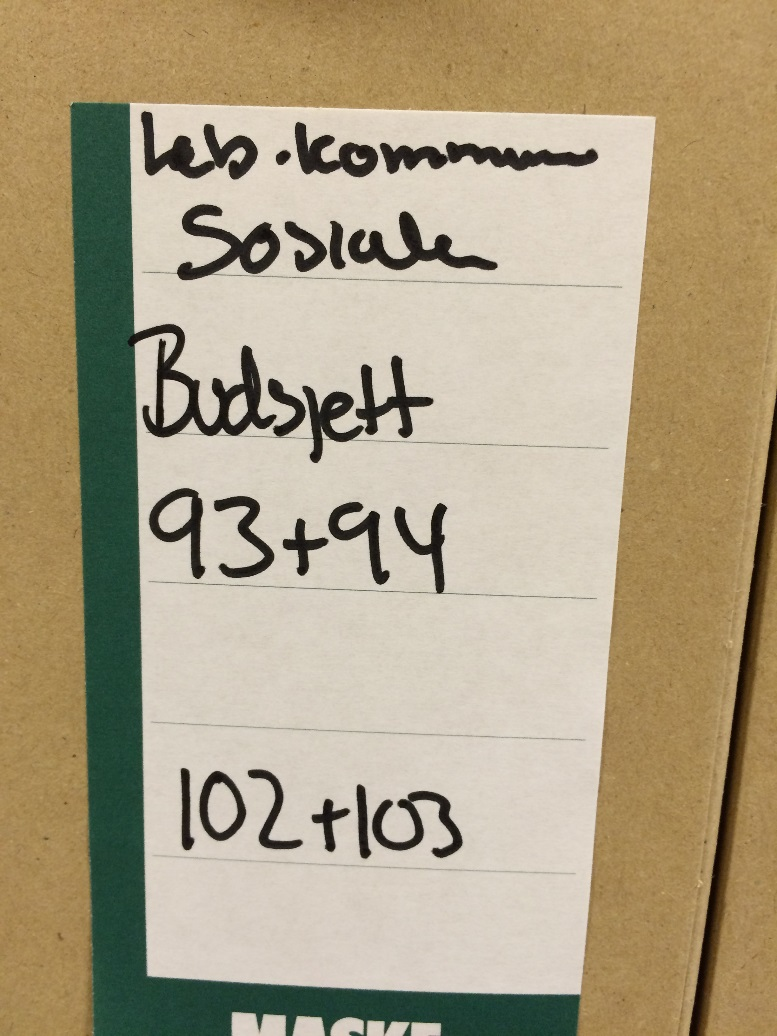 Leb.kommune
Sosiale
Budsjett
93+94
102+103
MASKE